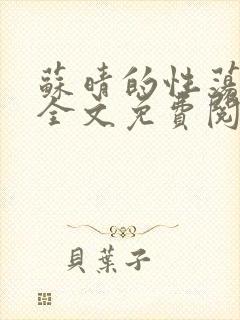 蘇晴的性蕩
全文免費閱
貝葉子